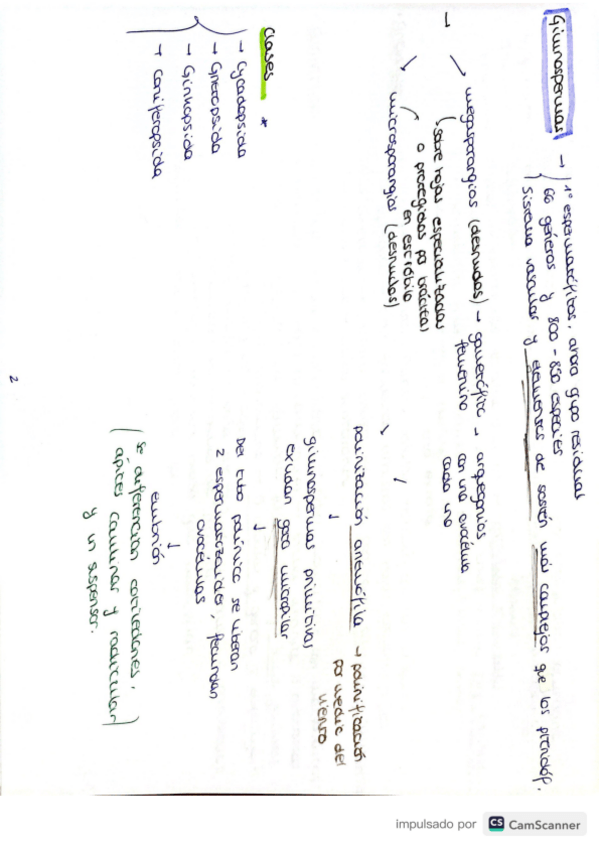 Gimnospermas → 1º espermatófitos, ahora grupo residual
66 géneros y 800 - 850 especies
Sistema vascular y elementos de sostén más complejos que los pteridóf.
→ megasporangios (desnudos) → gametófito femenino → arquegonios con una ovocélula cada uno
(sobre hojas especializadas
o protegidas por brácteas
en estróbilo
microsporangios (desnudos)
polinización anemófila → polinificación por medio del viento
↓
gimnospermas primitivas
exudan gota micropilar
↓
Del tubo polínico se liberan
2 espermatozoides, fecundan
ovocélulas
↓
embrión
(se diferencian cotiledones,
ápices caulinar y radicular
y un suspensor.)
Clases *
→ Cycadopsida
→ Gnetopsida
→ Ginkopsida
→ Coniferopsida
2
impulsado por CS CamScanner